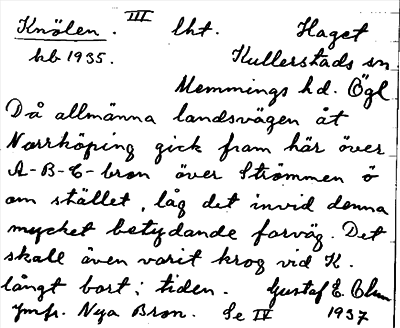 Knölen. III lht. Haget
hb 1935. Kullerstads sn
Memmings hd. Ögl
Då allmänna landsvägen åt
Norrköping gick fram här över
A-B-C-bron över Strömmen ö
om stället, låg det invid denna
mycket betydande farväg. Det
skall även varit krog vid K.
långt bort i tiden. Gustaf E.
Jmfr. Nya Bron. Se IV 1937